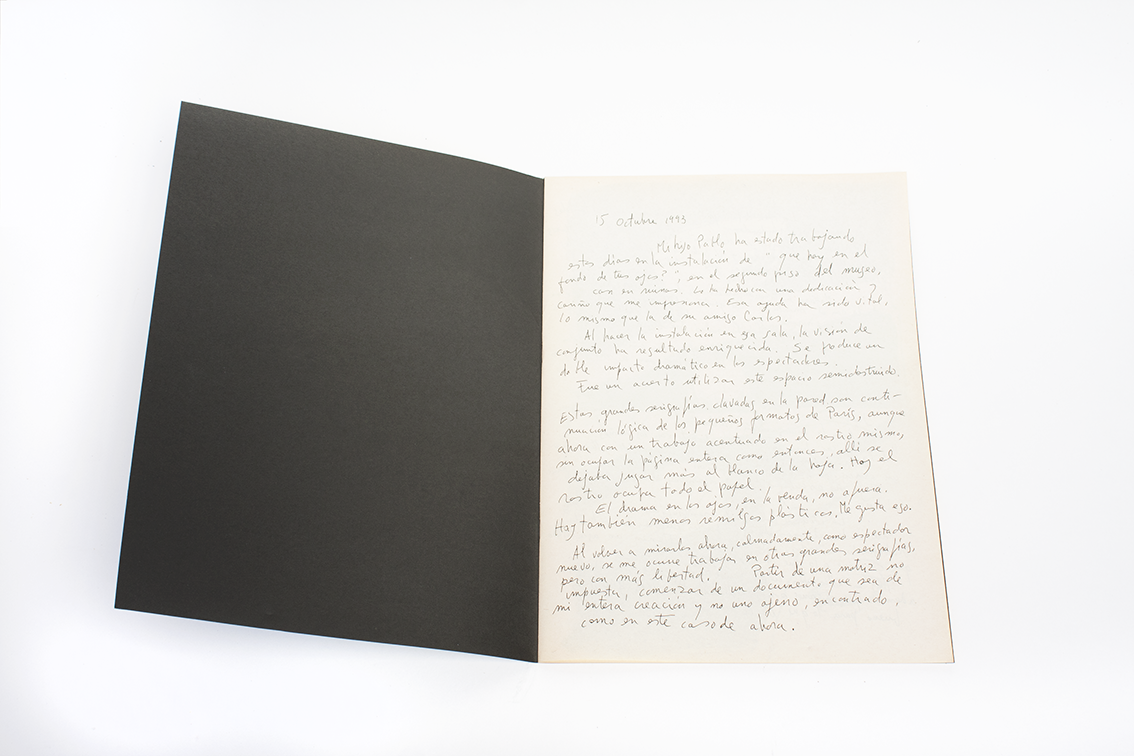 15 octubre 1993
Mi hijo Pablo ha estado trabajando
estos días en la instalación de "¿que hay en el
fondo de tus ojos?", en el segundo piso del museo,
casi en ruinas. Lo ha hecho con una dedicación y
cariño que me impresiona. Esa ayuda ha sido vital,
lo mismo que la de su amigo Carlos.
Al hacer la instalación en esa sala, la visión de
conjunto ha resultado enriquecida. Se produce un
doble impacto dramático en los espectadores.
Fue un acierto utilizar este espacio semidestruido.
Estas grandes serigrafías clavadas en la pared son conti-
nuación lógica de los pequeños formatos de París, aunque
ahora con un trabajo acentuado en el rostro mismo,
sin ocupar la página entera como entonces, allí se
dejaba jugar más al blanco de la hoja. Hoy el
rostro ocupa todo el papel.
El drama en los ojos, en la venda, no afuera.
Hay también menos remilgos plásticos. Me gusta eso.
Al volver a mirarlas ahora, calmadamente, como espectador
nuevo, se me ocurre trabajar en otras grandes serigrafías,
pero con más libertad. Partir de una matriz no
impuesta, comenzar de un documento que sea de
mi entera creación y no uno ajeno, encontrado,
como en este caso de ahora.